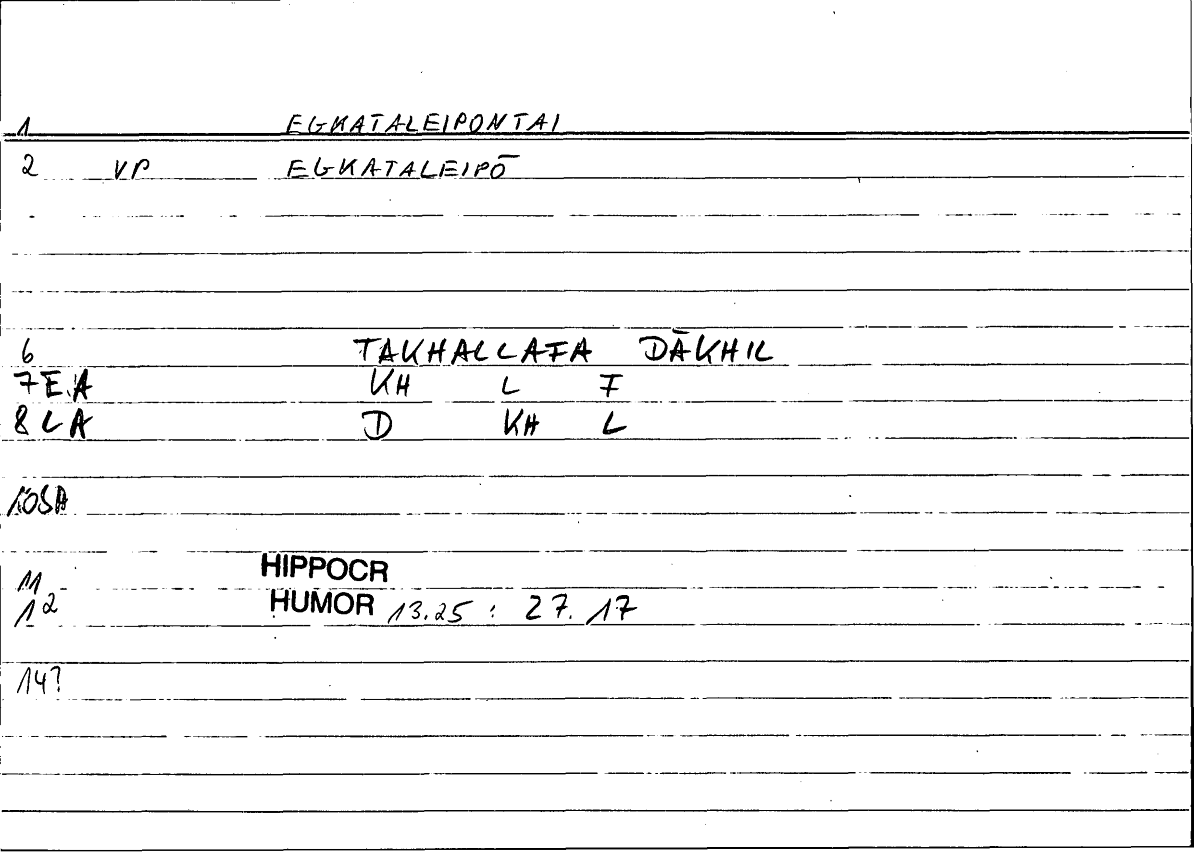 1 EGKATALEIPONTAI
2 VP EGKATALEIPŌ
6 TAKHALLAFA DĀKHIL
7 E.A KH L F
8 LA D KH L
10SA
11 HIPPOCR
12 HUMOR 13.25 : 27.17
14?